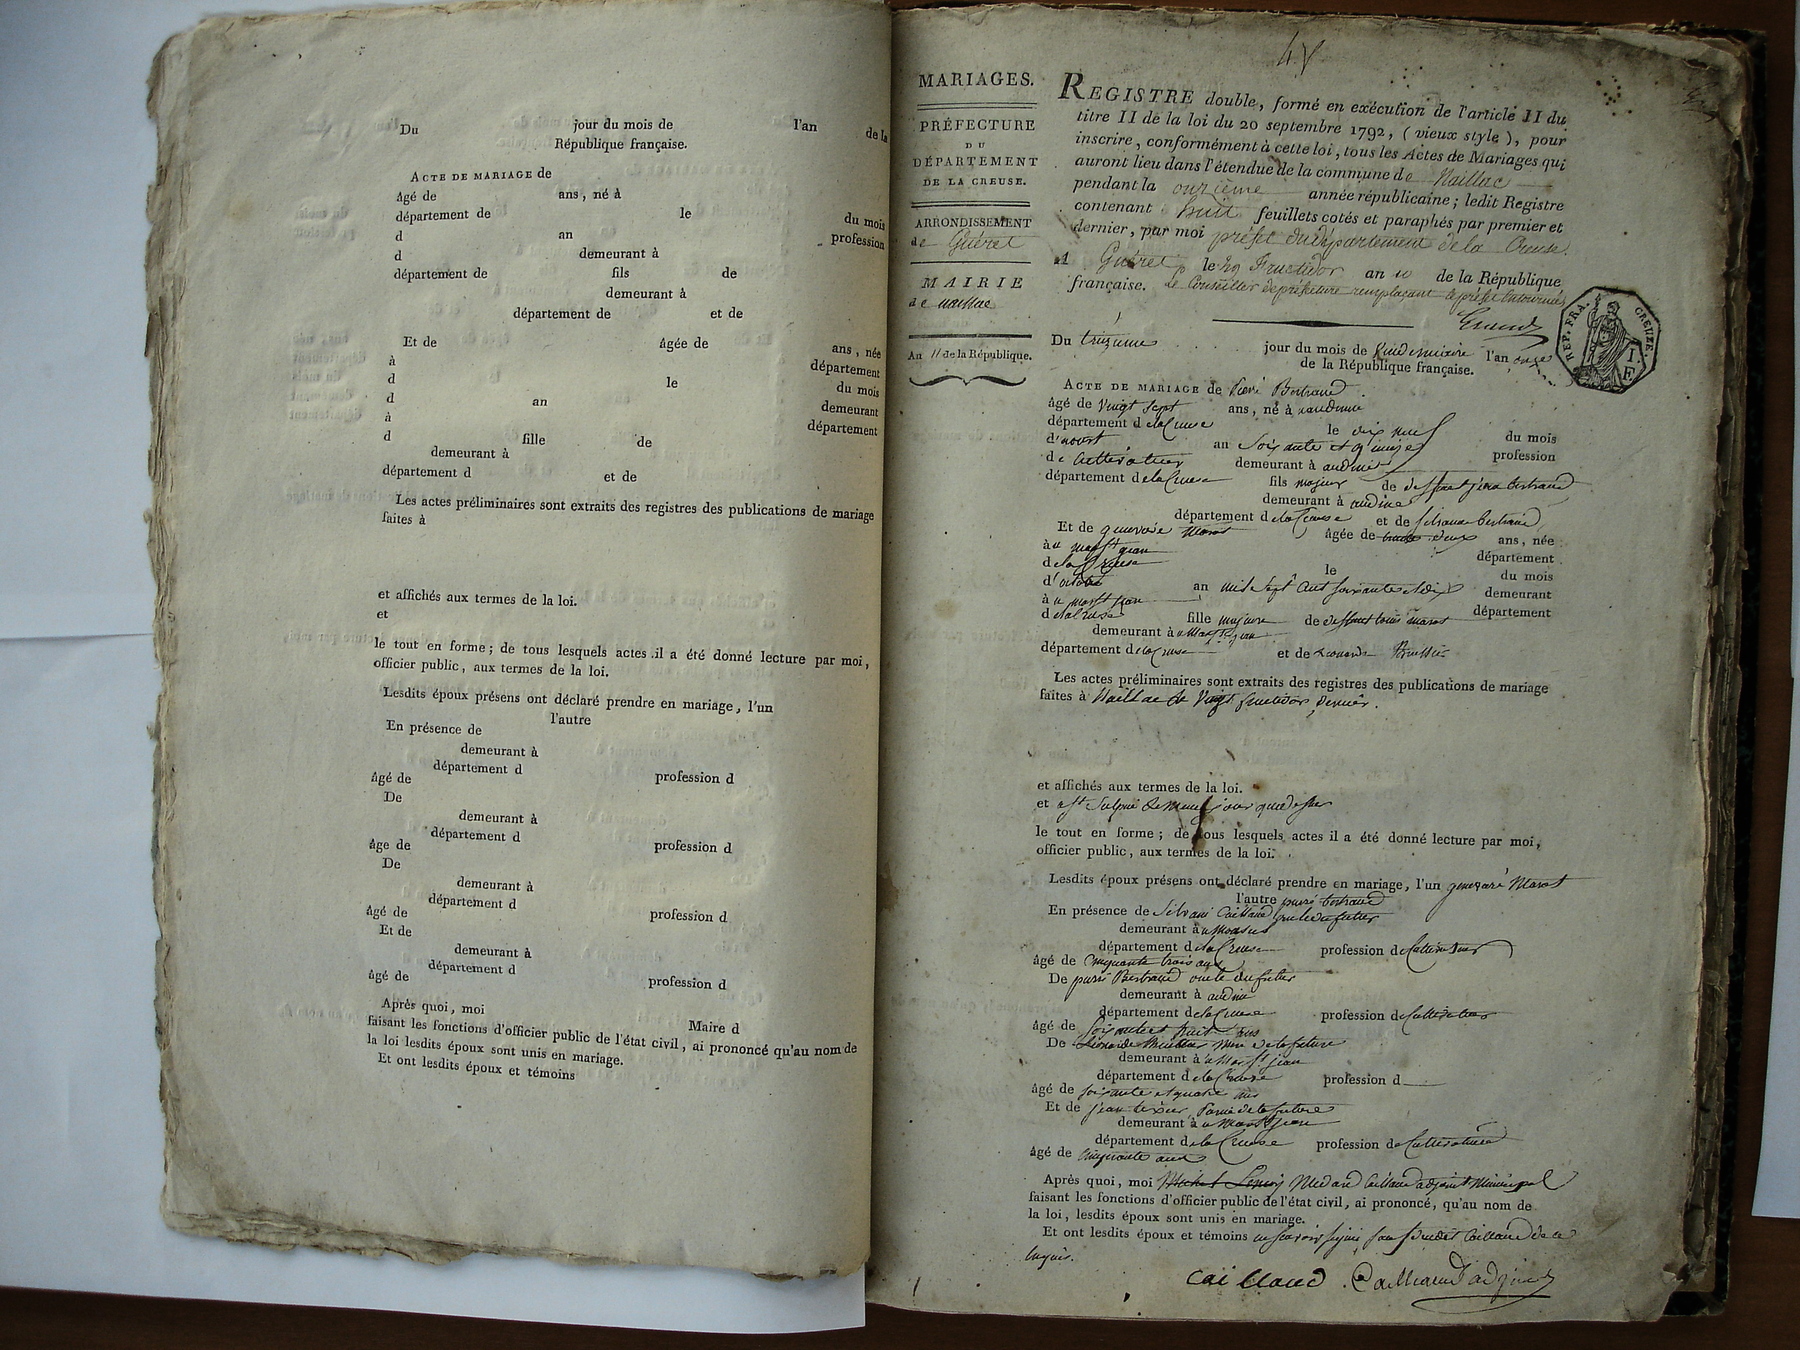 Du jour du mois de l'an de la
République française.
ACTE DE MARIAGE de
âgé de ans, né à
département de le du mois
d an profession
d demeurant à
département de fils de
demeurant à
département de et de
Et de âgée de ans, née
à département
d le du mois
d an demeurant
à département
d fille de
demeurant à
département d et de
Les actes préliminaires sont extraits des registres des publications de mariage
faites à
et affichés aux termes de la loi.
et
le tout en forme; de tous lesquels actes il a été donné lecture par moi,
officier public, aux termes de la loi.
Lesdits époux présens ont déclaré prendre en mariage, l'un
l'autre
En présence de
demeurant à
département d
âgé de profession d
De
demeurant à
département d
âge de profession d
De
demeurant à
département d
âgé de profession d
Et de
demeurant à
département d
âgé de profession d
Après quoi, moi Maire d
faisant les fonctions d'officier public de l'état civil, ai prononcé qu'au nom de
la loi lesdits époux sont unis en mariage.
Et ont lesdits époux et témoins
MARIAGES.
PRÉFECTURE
DU
DÉPARTEMENT
DE LA CREUSE.
ARRONDISSEMENT
de Guéret
MAIRIE
de naillac
An 11 de la République.
REGISTRE double, formé en exécution de l'article II du
titre II de la loi du 20 septembre 1792, (vieux style), pour
inscrire, conformément à cette loi, tous les Actes de Mariages qui
auront lieu dans l'étendue de la commune de Naillac
pendant la onzième année républicaine; ledit Registre
contenant huit feuillets cotés et paraphés par premier et
dernier, par moi préfet du département de la Creuse.
A Guéret le 29 Fructidor an 10 de la République
française. Le Conseiller de préfecture remplaçant le préfet
REP. FRA. CREUZE.
Du treizieme jour du mois de Vendemiaire l'an onze
de la République française.
ACTE DE MARIAGE de Bertrand
âgé de vingt sept ans, né à
département de la Creuse le dix neuf du mois
d'aoust an soixante et quinze profession
de cultivateur demeurant à
département de la Creuse fils majeur de deffunt jean bertrand
demeurant à
département de la Creuse et de bertrand
Et de Marot âgée de deux ans, née
à u mas st jean département
de la Creuse le du mois
d' an mil sept cent soixante et dix demeurant
à u mas st jean département
de la Creuse fille majeure de deffunt louis marot
demeurant à u mas st jean
département de la Creuse et de
Les actes préliminaires sont extraits des registres des publications de mariage
faites à Naillac le vingt fructidor dernier.
et affichés aux termes de la loi.
et st Sulpice
le tout en forme; de tous lesquels actes il a été donné lecture par moi,
officier public, aux termes de la loi.
Lesdits époux présens ont déclaré prendre en mariage, l'un Marot
l'autre bertrand
En présence de Caillaud du futur
demeurant à
département de la Creuse profession de Cultivateur
âgé de cinquante trois ans
De Bertrand oncle du futur
demeurant à
département de la Creuse profession de Cultivateur
âgé de soixante et huit ans
De mere de la future
demeurant à u mas st jean
département de la Creuse profession d
âgé de soixante et quatre ans
Et de jean de la future
demeurant à u mas st jean
département de la Creuse profession de Cultivateur
âgé de cinquante ans
Après quoi, moi Caillaud adjoint Municipal
faisant les fonctions d'officier public de l'état civil, ai prononcé, qu'au nom de
la loi, lesdits époux sont unis en mariage.
Et ont lesdits époux et témoins Caillaud de ce
caillaud Cailliaud adjoint